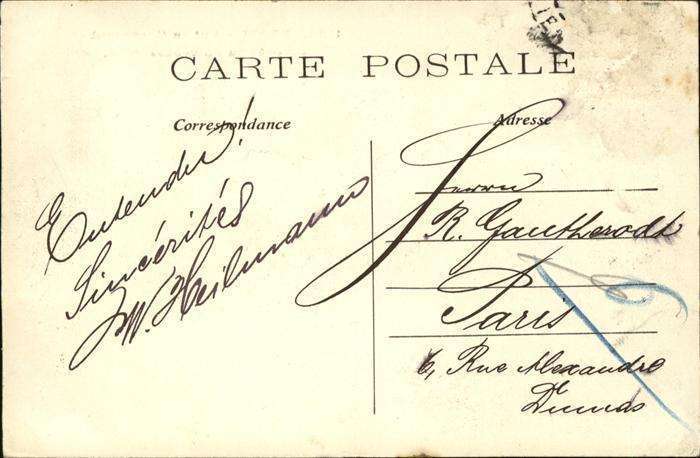 CARTE POSTALE
Correspondance
Adresse
Entendu!
Sincérités
W. Heilmann
Herrn
R. Gautherodt
Paris
6, Rue Alexandre
Dumas